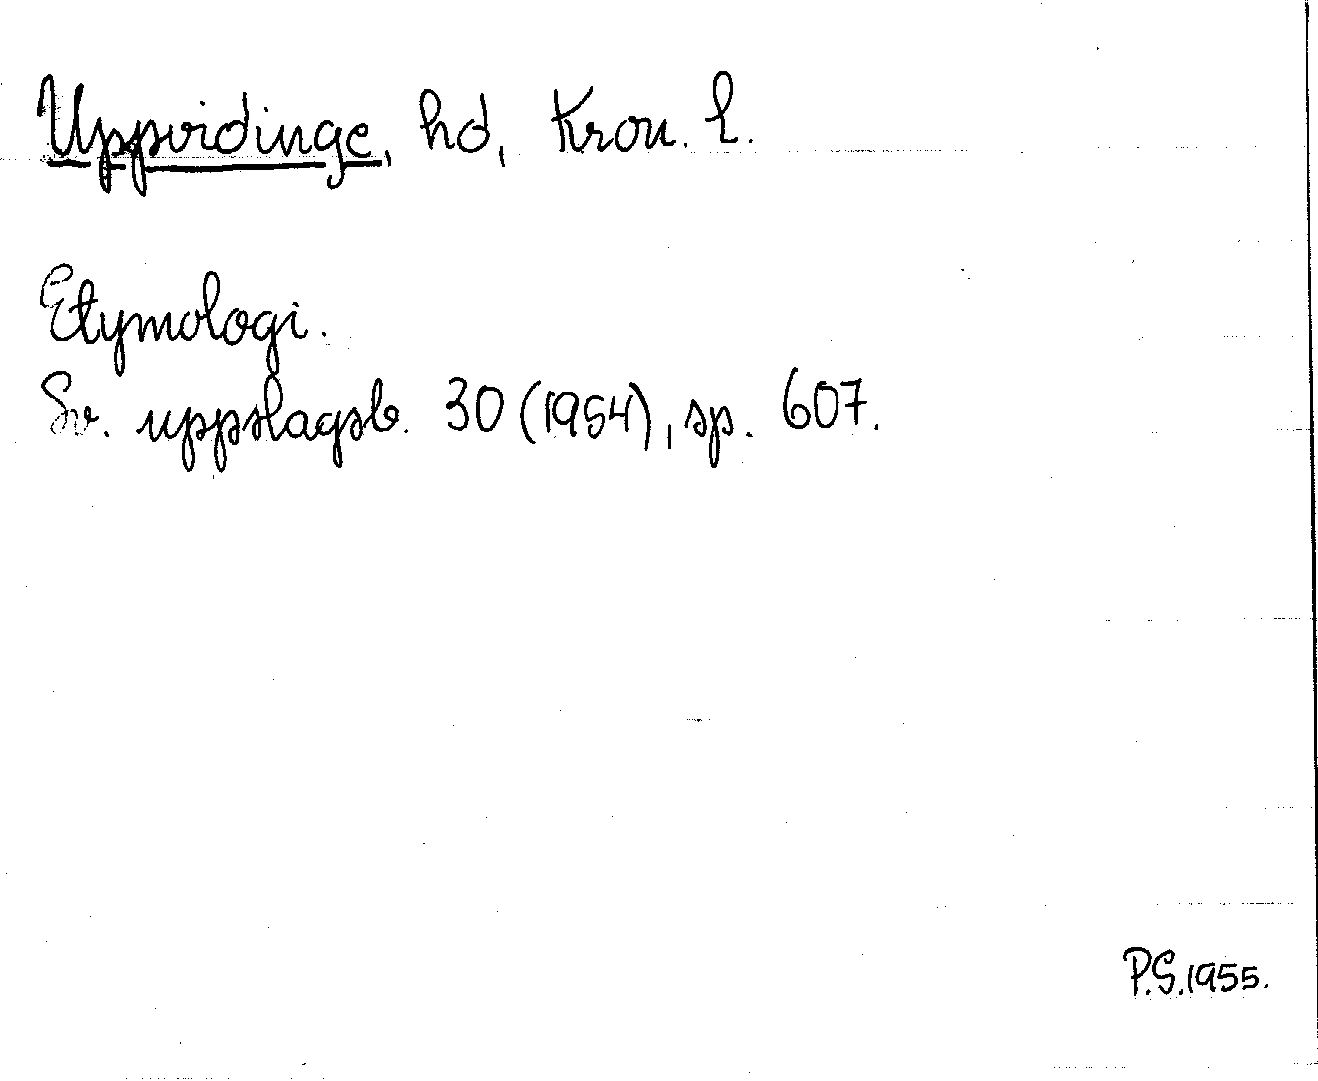 Uppvidinge, hd, Kron. l.
Etymologi.
Sv. uppslagsb. 30 (1954), sp. 607.
P.S. 1955.